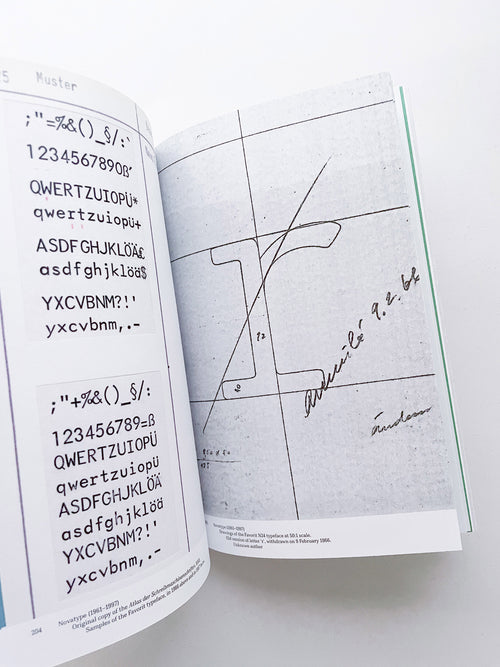 25 Muster
;"=%&()_§/:`
1234567890ß´
QWERTZUIOPÜ*
qwertzuiopü+
ASDFGHJKLÖÄ£
asdfghjklöä$
YXCVBNM?!'
yxcvbnm,.-
;"+%&()_§/:
123456789=ß
QWERTZUIOPÜ
qwertzuiopü
ASDFGHJKLÖÄ
asdfghjklöä
YXCVBNM?!'
yxcvbnm,.-
204
Novatype (1961–1997)
Original copy of the Atlas der Schreibmaschinenschriften,
Samples of the Favorit typeface, in 1966 above and in
92
9.2.66
ändern
Novatype (1961–1997)
Drawings of the Favorit N24 typeface at 50:1 scale.
Old version of letter 'r', withdrawn on 9 February 1966.
Unknown author